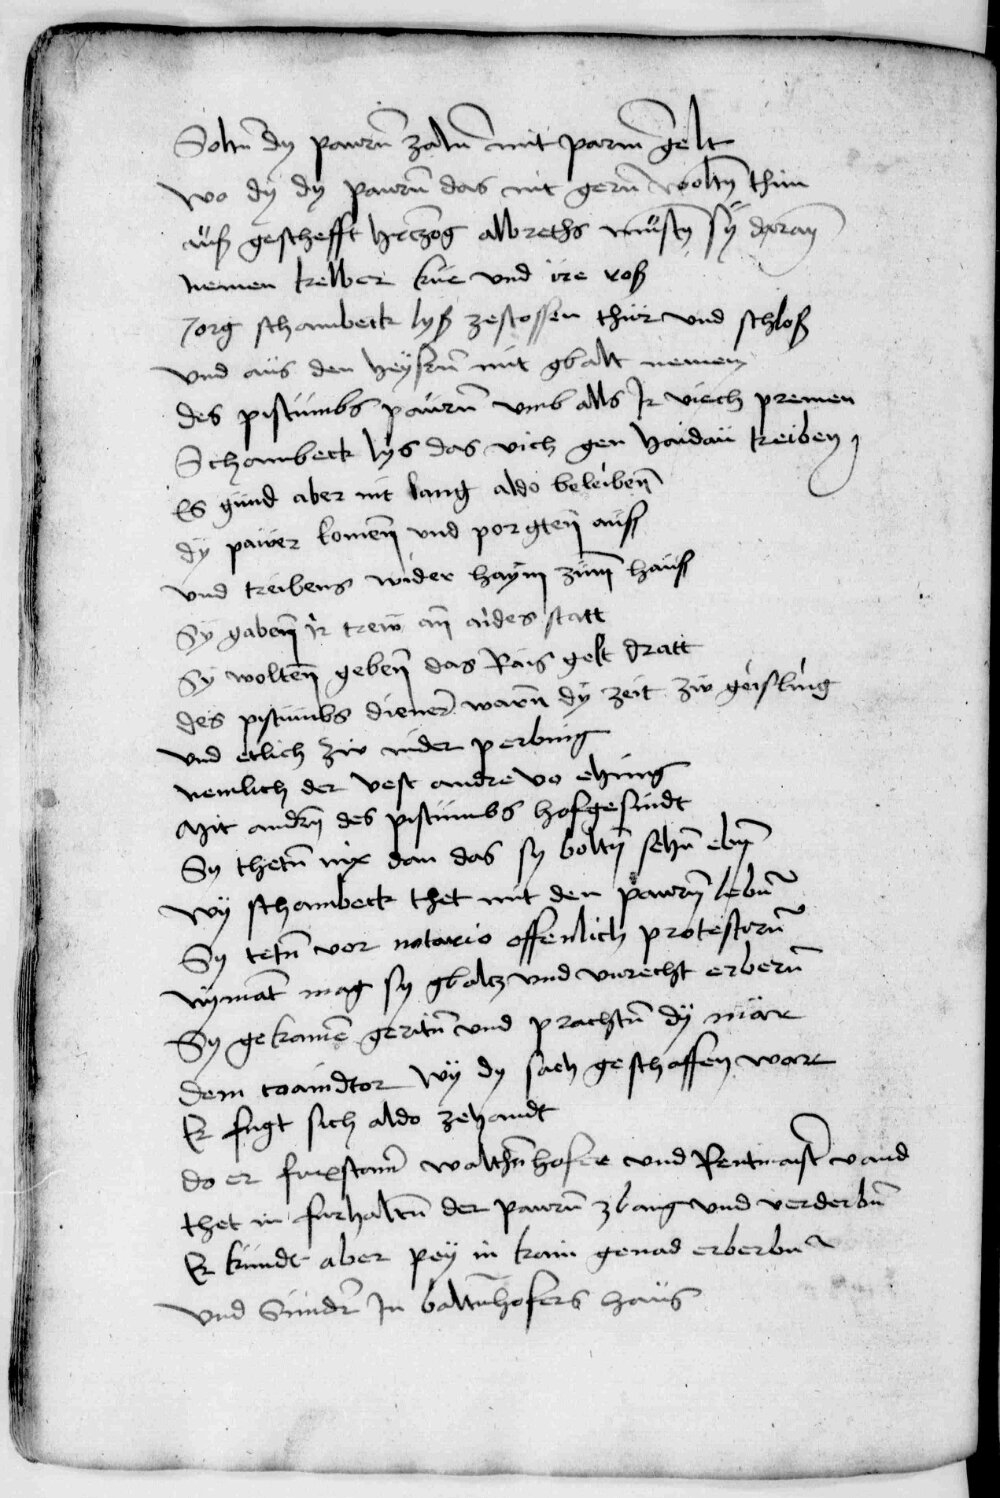 Soltn dy pawrn zaln mit parm gelt
wo dy dy pawrn das nit gern woltn thun
auß geschefft hertzog albrechts mustn sy daran
nemen kelber kue und ire roß
Jorg schambeck lyß zestossen thür und schloß
und aus den heysern mit gbalt nemen
des pistumbs paurn umb alls Ir viech premen
Schambeck lys das vich gen haidau treiben
Es gund aber nit lang aldo beleiben
dy pawer komen und porgten auß
und treibens wider haym zum hauß
Sy gaben Ir trew an aides statt
Sy wolten geben das Rais gelt dratt
des pistumbs diener warn dy zeit zw geisling
und etlich zw nider perbing
nemlich der vest andre vo ehing
Mit andrn des pistumbs hofgesindt
Sy thetn nix dan das sy boltn sehn ebn
wy schambeck thet mit den pawrn lebn
Sy tetn vor notario offenlich protestern
nymät mag sy gbaltz und unrecht erbern
Sy gekamen geritn und prachtn dy mär
dem coaindtor wy dy sach geschaffen war
Er fugt sich aldo zehandt
do er forstmr walthnhofer und Rentmaistr vand
thet in furhaltn der pawrn zbang und verderbn
Er kundt aber pey in kain genad erberbn
und Sundr In baltnhofers haus